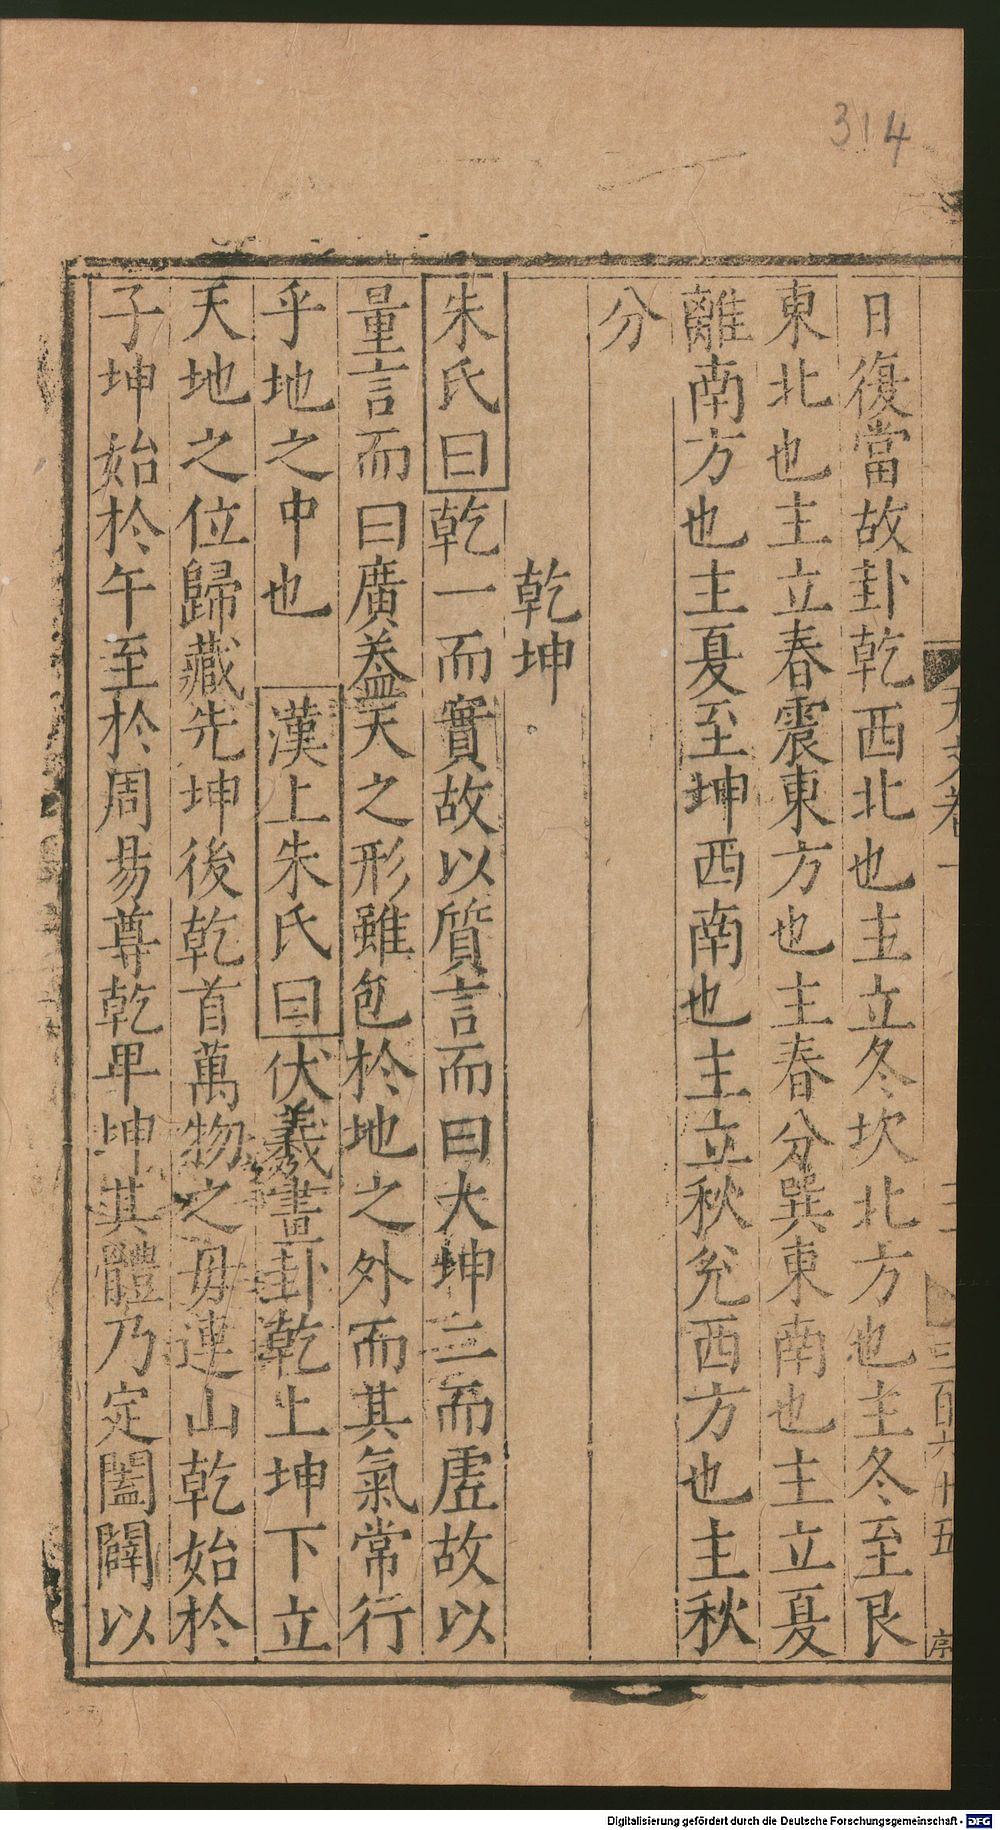 314
天文卷一
三百六十五
日復當故卦乾西北也主立冬坎北方也主冬至艮
東北也主立春震東方也主春分巽東南也主立夏
離南方也主夏至坤西南也主立秋兊西方也主秋
分
乾坤
朱氏曰乾一而實故以質言而曰大坤二而虗故以
量言而曰廣盖天之形雖包於地之外而其氣常行
乎地之中也 漢上朱氏曰伏羲畫卦乾上坤下立
天地之位歸藏先坤後乾首萬物之毋連山乾始於
子坤始於午至於周易尊乾卑坤其體乃定闔闢以
Digitalisierung gefördert durch die Deutsche Forschungsgemeinschaft - DFG